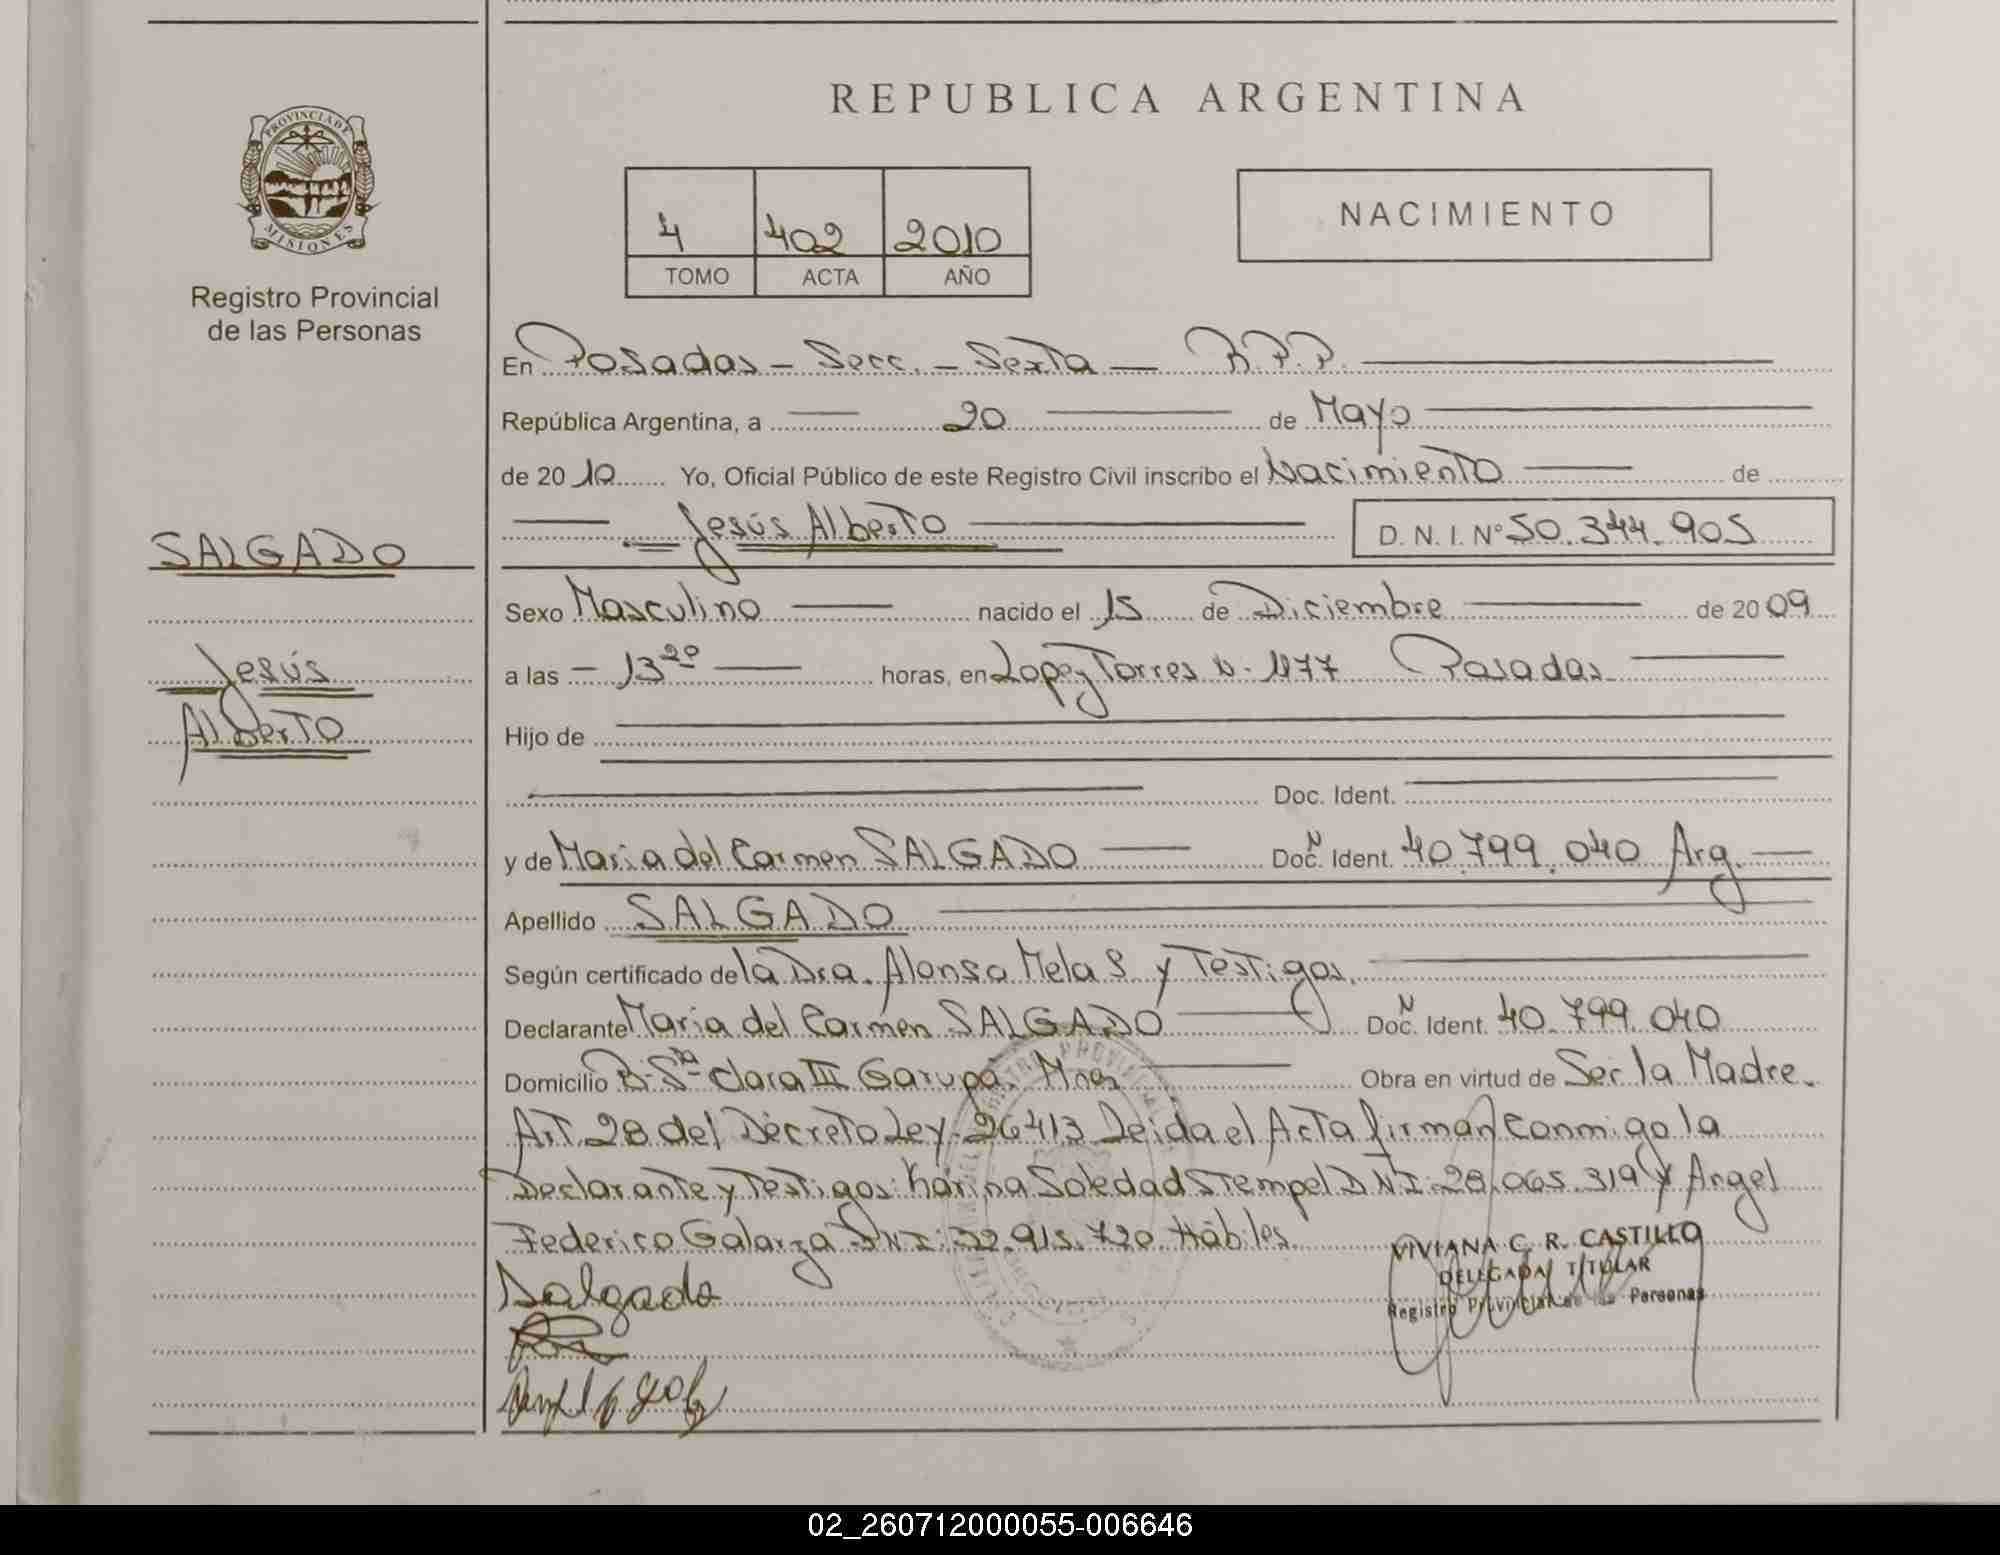 REPUBLICA ARGENTINA
PROVINCIA DE
MISIONES
Registro Provincial
de las Personas
4 402 2010
TOMO ACTA AÑO
NACIMIENTO
En Posadas - Secc. - Sexta - R.P.P.
República Argentina, a 20 de Mayo
de 2010 Yo, Oficial Público de este Registro Civil inscribo el Nacimiento de
Jesús Alberto D. N. I. Nº 50.344.905
SALGADO
Jesús
Alberto
Sexo Masculino nacido el 15 de Diciembre de 2009
a las - 13 20 horas, en Lopez Torres N. 1177 Posadas
Hijo de
Doc. Ident.
y de Maria del Carmen SALGADO Doc. Ident. N 40.799.040 Arg.
Apellido SALGADO
Según certificado de la Dra. Alonso Mela S y Testigos.
Declarante Maria del Carmen SALGADO Doc. Ident. N 40.799.040
Domicilio B- Sta Clara III Garupa. Mnes Obra en virtud de Ser la Madre.
Art. 28 del Decreto Ley 26413 Leida el Acta firman conmigo la
Declarante y Testigos: Karina Soledad Stempel DNI: 28.065.319 y Angel
Federico Galarza DNI: 32.915.720 Hábiles.
VIVIANA C. R. CASTILLO
DELEGADA TITULAR
Registro Provincial de las Personas
Salgado
02_260712000055-006646